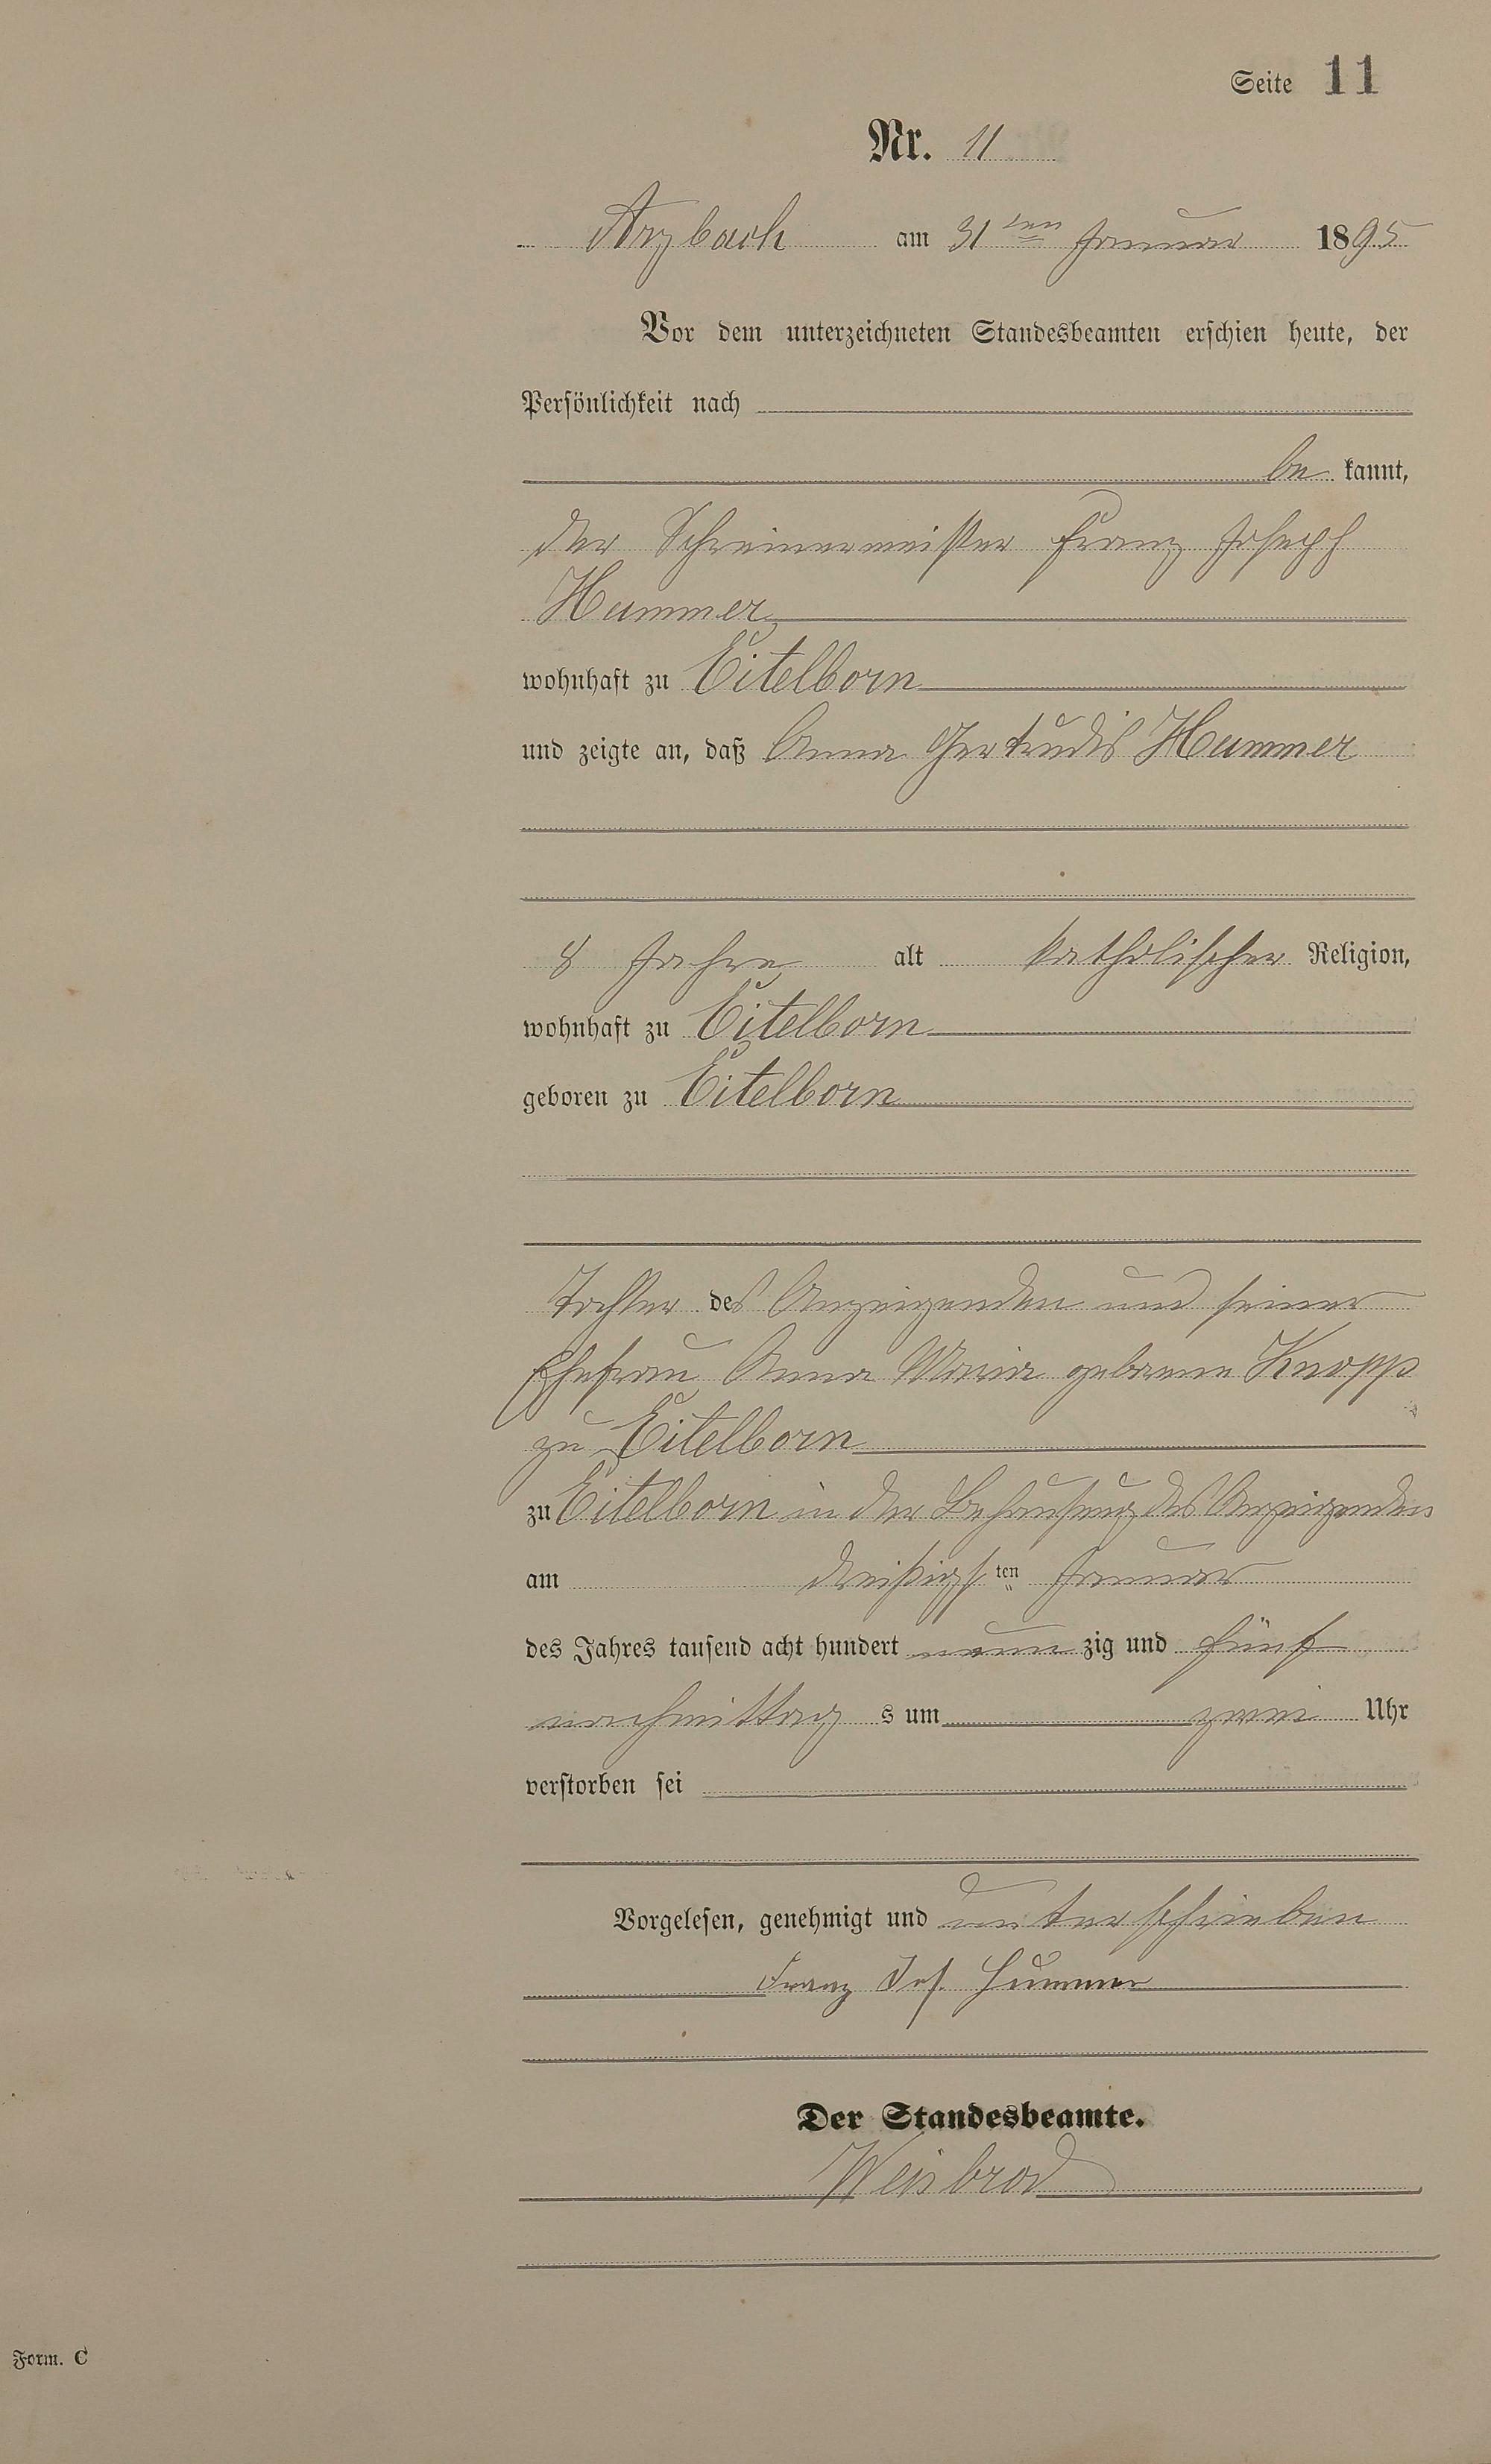 Seite 11
Nr. 11
Arzbach am 31ten Januar 1895
Vor dem unterzeichneten Standesbeamten erschien heute, der
Persönlichkeit nach
be kannt,
der Schreinermeister Franz Joseph
Hummer,
wohnhaft zu Eitelborn
und zeigte an, daß Anna Gertrudis Hummer
8 Jahre, alt katholischer Religion,
wohnhaft zu Eitelborn
geboren zu Eitelborn
Tochter des Anzeigenden und seiner
Ehefrau Anna Maria geborene Knopp
zu Eitelborn
zu Eitelborn in der Behausung des Anzeigenden
am dreißigsten Januar
des Jahres tausend acht hundert neun zig und fünf
nachmittag s um zwei Uhr
verstorben sei
Vorgelesen, genehmigt und unterschrieben
Franz Jos. Hummer
Der Standesbeamte.
Weisbrod
Form. C